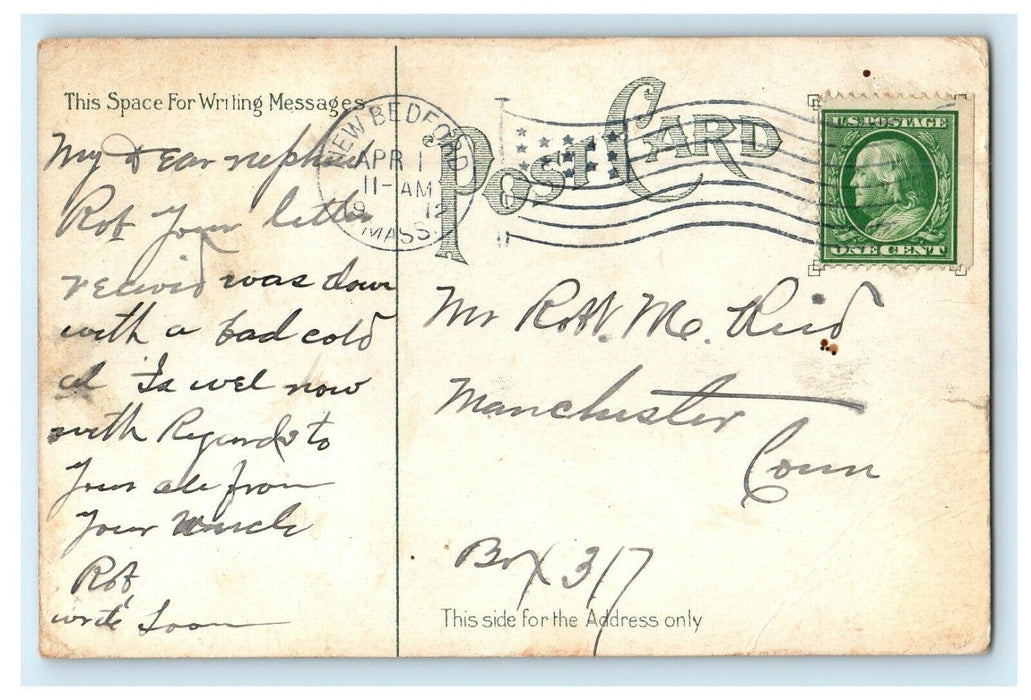 This Space For Writing Messages
My Dear nephew
Rob Your letter
receivid was down
with a bad cold
Is wel now
with Regards to
Your ale from
Your Wncle
Rob
write Soon
NEW BEDFORD
APR 1
11-AM
1912
MASS.
POST CARD
U.S. POSTAGE
ONE CENT
Mr Robt. Mc. Reid
Manchester
Conn
Box 317
This side for the Address only